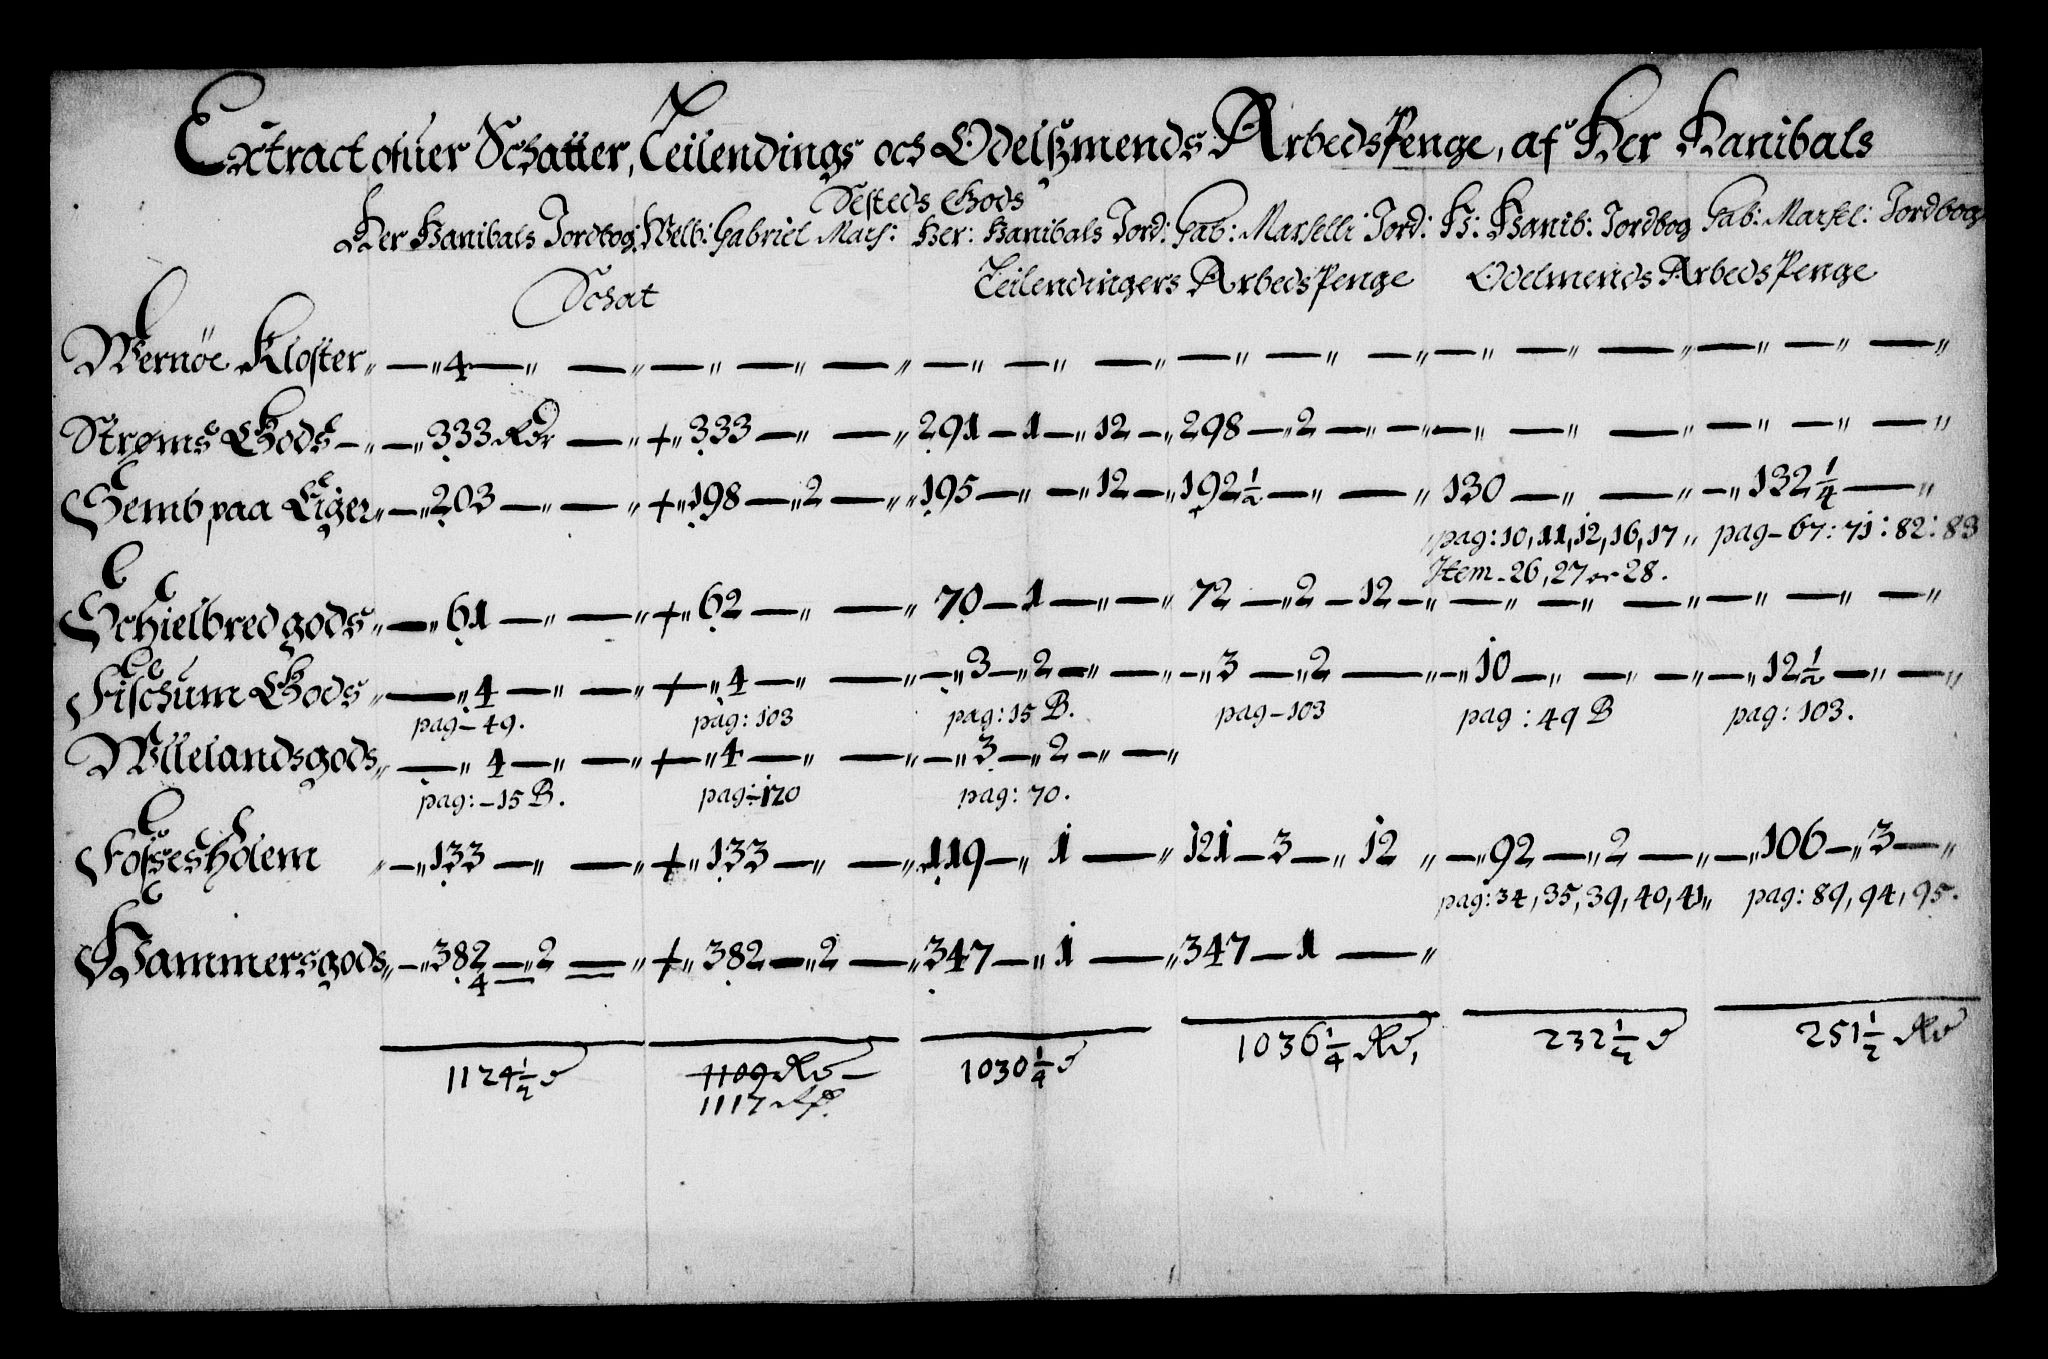 Extract ofuer Schatter, Leilendings och Odelßmends ArbedsPenge, af Her Hanibals
Sesteds Gods
Her Hanibals Jordbog: Welb: Gabriel Mars: Her: Hanibals Jord: Gab: Marselli Jord: H: Hanib: Jordbog Gab: Marsel: Jordbog
Schat Leilendingers ArbedsPenge Odelmends ArbedsPenge
Wernöe Kloster „ — „ 4 — „ — „ — „ — „ — „ — „ — „ — „ — „ — „ — „ — „ — „ — „ — „ — „ — „
Strøms Gods — „ — „ 333 Rdr — „ + „ 333 — „ — „ 291 — 1 — „ 12 — „ 298 — „ 2 — „ — „ — „ — „ — „ — „ — „ — „
Semb paa Eiger „ — „ 203 — „ — „ + „ 198 — „ 2 — „ 195 — „ — „ 12 — „ 192 1/2 — „ — „ 130 — „ — „ — „ 132 1/4 — „
„ pag: 10, 11, 12, 16, 17 „ pag — 67: 71: 82: 83
Item — 26, 27 oc 28.
Schielbred gods „ — „ 61 — „ — „ + „ 62 — „ — „ 70 — 1 — „ — „ 72 — „ 2 — 12 — „ — „ — „ — „ — „ — „ — „
Fischum Gods „ — „ 4 — „ — „ + — „ 4 — „ — „ — „ 3 — „ 2 — „ — „ — „ 3 — „ 2 — „ — „ 10 — „ — „ — „ — „ 12 1/2 — „ — „
pag — 49. pag: 103 pag: 15 B. pag — 103 pag: 49 B pag: 103.
Wllelandsgods „ — „ 4 — „ — „ + — „ 4 — „ — „ — „ 3 — „ 2 — „ — „
pag: — 15 B. pag: — 120 pag: 70.
Fosßesholem „ — „ 133 — „ — „ + „ 133 — „ — „ 119 — „ 1 — „ 121 — 3 — „ 12 „ — „ 92 — „ 2 — „ — „ 106 — „ 3 — „
pag: 34, 35, 39, 40, 41 „ pag: 89, 94, 95.
Hammersgods „ — „ 382 — „ 2 — „ + „ 382 — „ 2 — „ 347 — „ 1 — „ 347 — 1 — „
4
1124 1/2 1109 Rd — 1030 1/4 1036 1/4 Rd, 232 1/2 251 1/2 Rd
1117